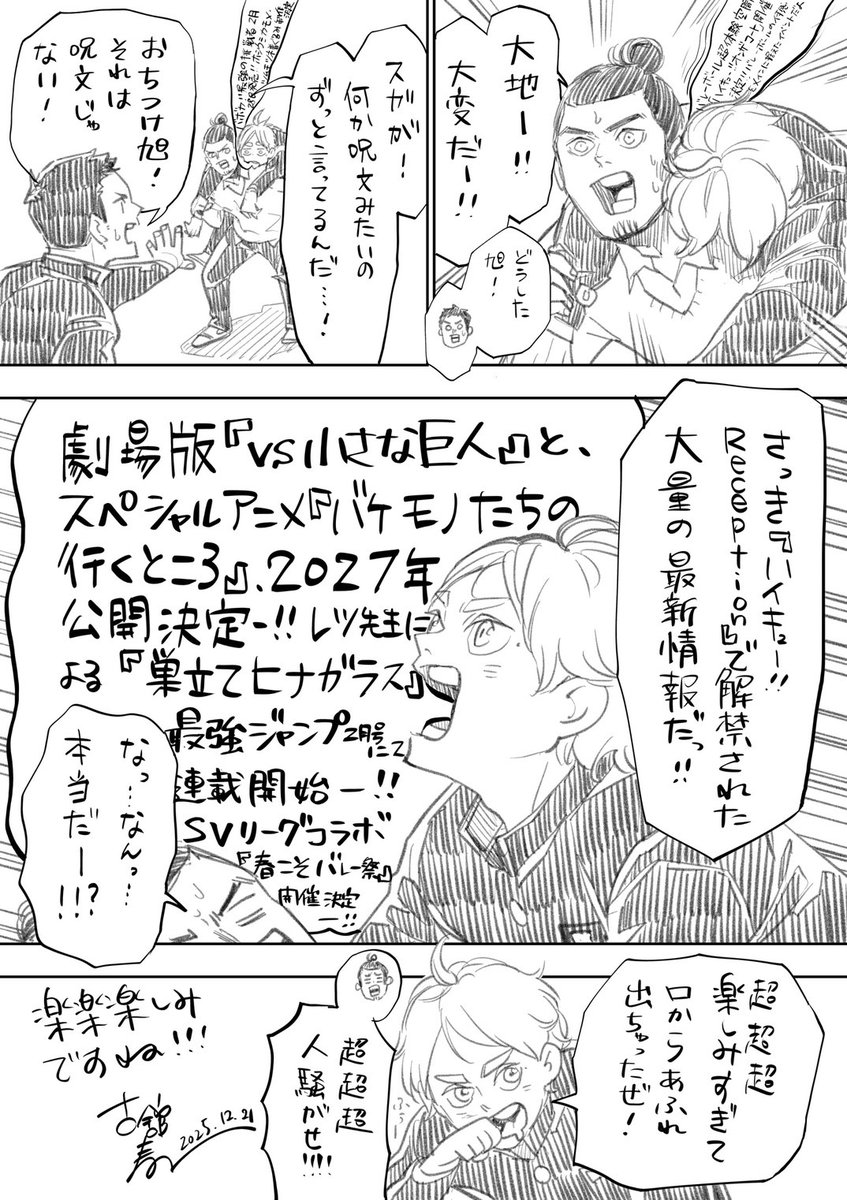 大地ー!!
大変だー!!
バレーボール超体験空間
どうした
旭!
スガが!
何か呪文みたいの
ずっと言ってるんだ…!
おちつけ旭!
それは
呪文じゃ
ない!
さっき『ハイキュー!!
Reception』で解禁された
大量の最新情報だっ!!
劇場版『VS小さな巨人』と、
スペシャルアニメ『バケモノたちの
行くところ』、2027年
公開決定ー!! レツ先生に
よる『巣立てヒナガラス』
最強ジャンプ2月号にて
連載開始ー!!
SVリーグコラボ
『春こそバレー祭』
開催決定
ー!!
なっ…なんっ…
本当だー!!?
超超超
楽しみすぎて
口からあふれ
出ちゃったぜ!
ふう
超超超
人騒がせ!!!!
楽楽楽しみ
ですね!!!
古舘春一
2025.12.21